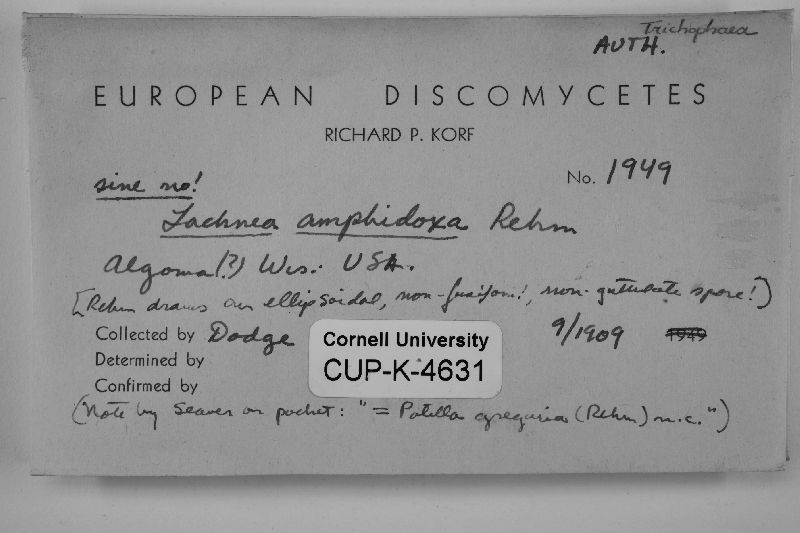 Trichophaea
AUTH.
EUROPEAN DISCOMYCETES
RICHARD P. KORF
sine no!
No. 1949
Lachnea amphidoxa Rehm
Algoma(?) Wis. USA.
[Rehm draws an ellipsoidal, non-fusiform!, non-guttulate spore!]
Collected by Dodge 9/1909 1949
Determined by
Confirmed by
Cornell University
CUP-K-4631
(Note by Seaver on packet: "= Patella gregaria (Rehm) n.c.")